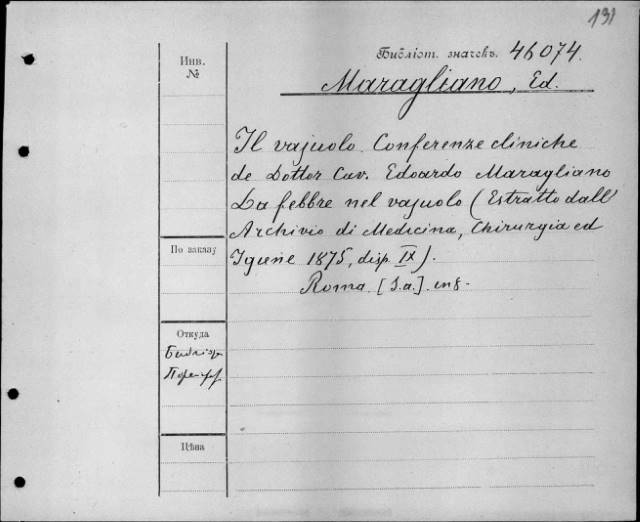 131
Библіот. значекъ. 46074.
Инв.
№
Maragliano, Ed.
Il vajuolo. Conferenze cliniche
de Dottor Cav. Edoardo Maragliano
La febbre nel vajuolo (Estratto dall'
Archivio di Medicina, Chirurgia ed
Igiene 1875, disp. IX).
Roma. [S.a.] in 8.
По заказу
Откуда
Цѣна